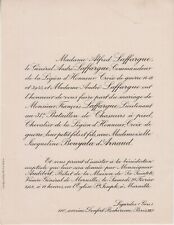 Madame Alfred Laffargue,
le Général André Laffargue, Commandeur
de la Légion d'Honneur Croix de guerre 14-18
et 39-45 et Madame André Laffargue ont
l'honneur de vous faire part du mariage de
Monsieur François Laffargue, Lieutenant
au 31e Bataillon de Chasseurs à pied,
Chevalier de la Légion d'Honneur, Croix de
guerre, leur petit-fils et fils avec Mademoiselle
Jacqueline Bouyala d'Arnaud.
Et vous prient d'assister à la bénédiction
nuptiale qui leur sera donnée par Monseigneur
Audibert Prélat de la Maison de Sa Sainteté
Vicaire Général de Marseille, le Samedi Février
à heures, en l'Église St Joseph, à Marseille.
Lagardère - Gers
Rochereau, Paris